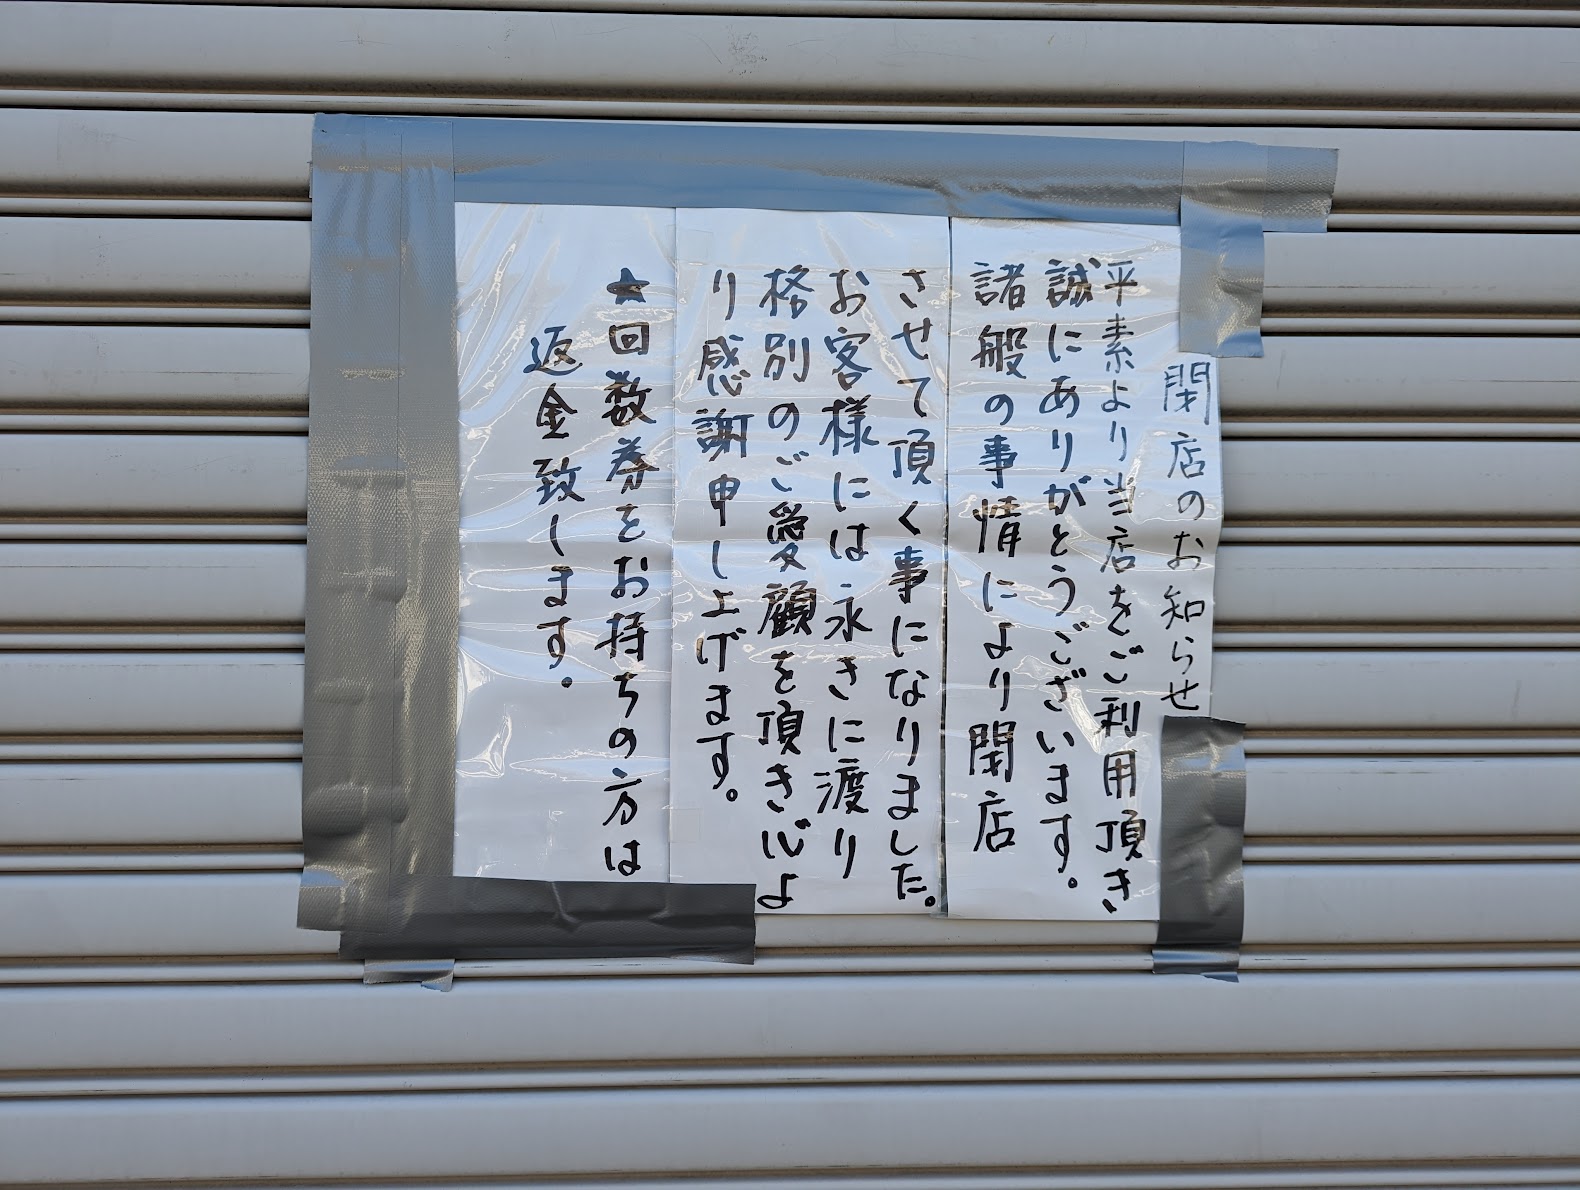 閉店のお知らせ
平素より当店をご利用頂き
誠にありがとうございます。
諸般の事情により閉店
させて頂く事になりました。
お客様には永きに渡り
格別のご愛顧を頂き心よ
り感謝申し上げます。
★回数券をお持ちの方は
返金致します。